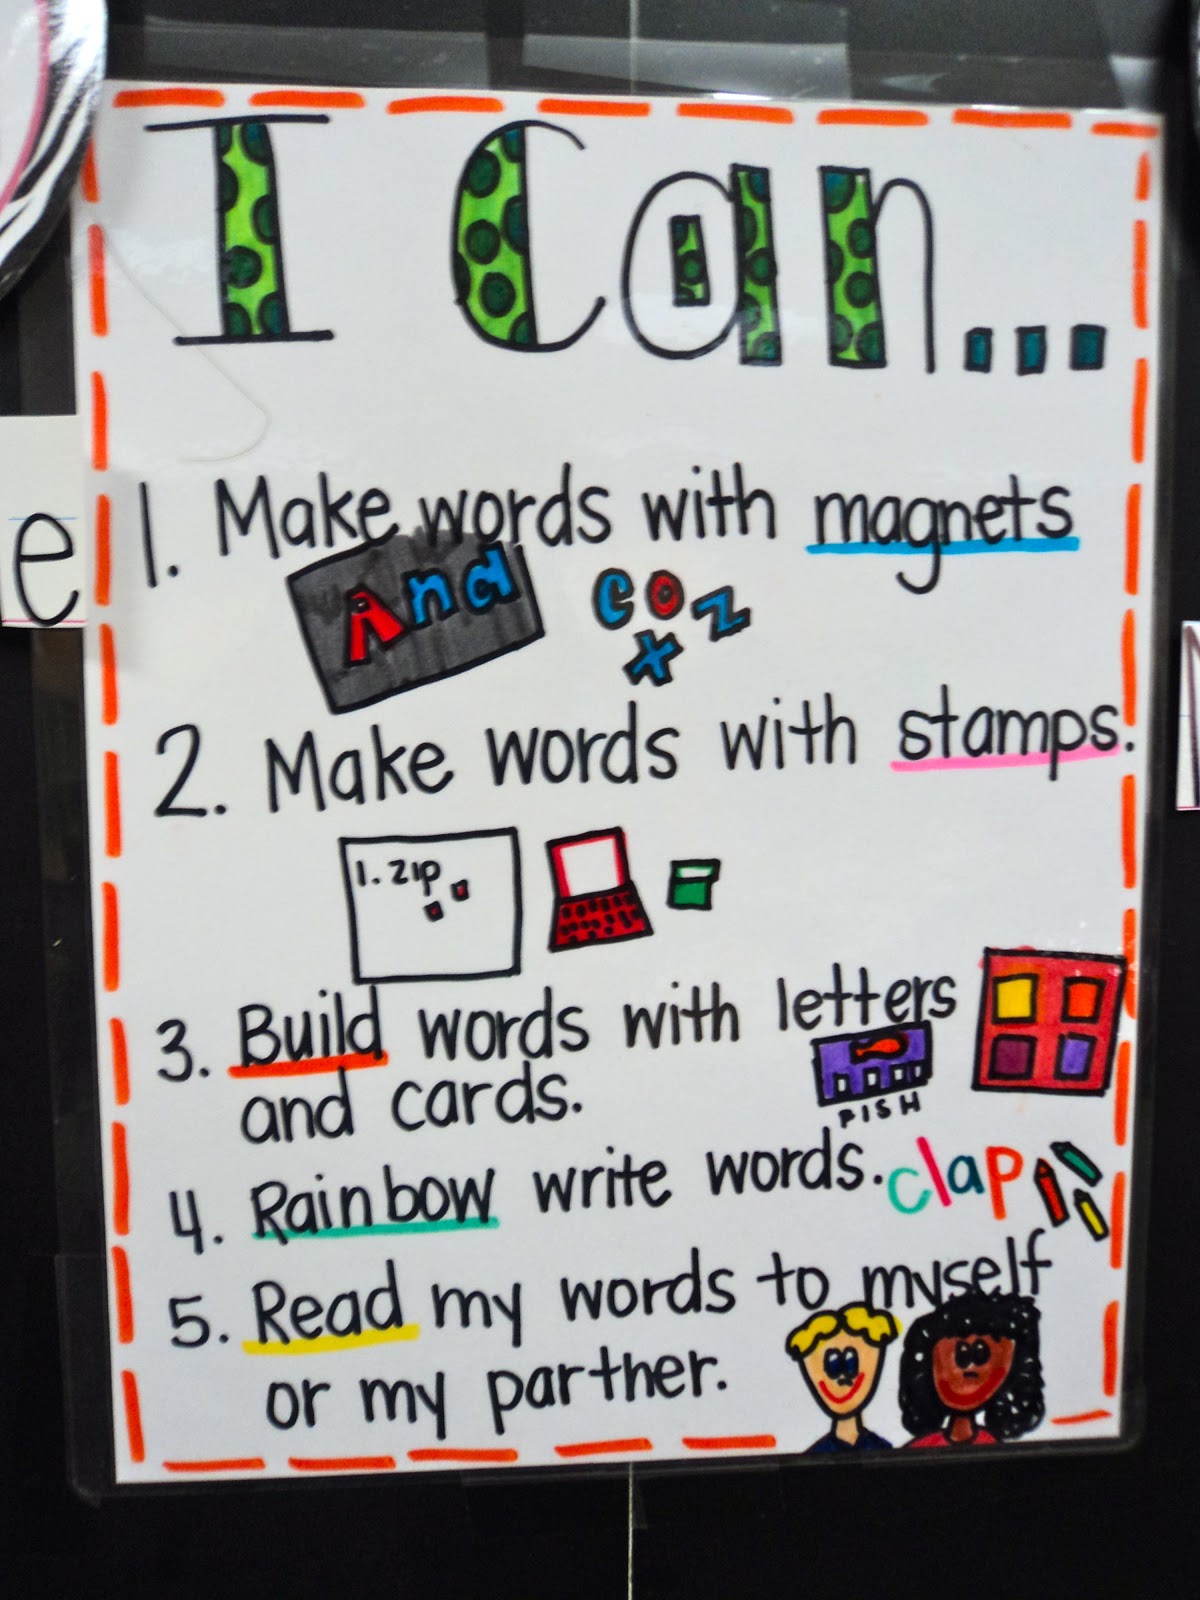 I Can...
1. Make words with magnets
And
c o z
x
2. Make words with stamps.
1. zip
3. Build words with letters
and cards.
FISH
4. Rainbow write words. clap
5. Read my words to myself
or my parther.
e